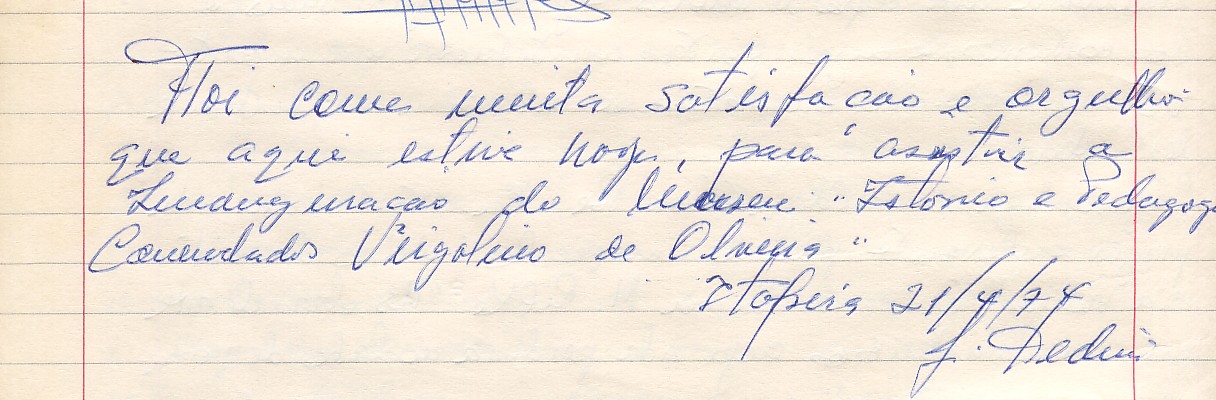 Foi com muita satisfação e orgulho
que aqui estive hoje, para assistir a
Inauguração do Museu "Istórico e Pedagogico
Comendador Virgolino de Oliveira"
Itapira 21/4/74
J. Dedini